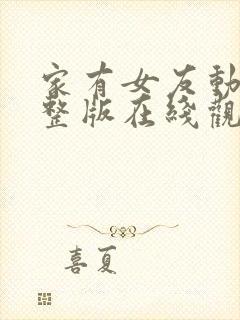 家有女友動
整版在綫觀
喜夏